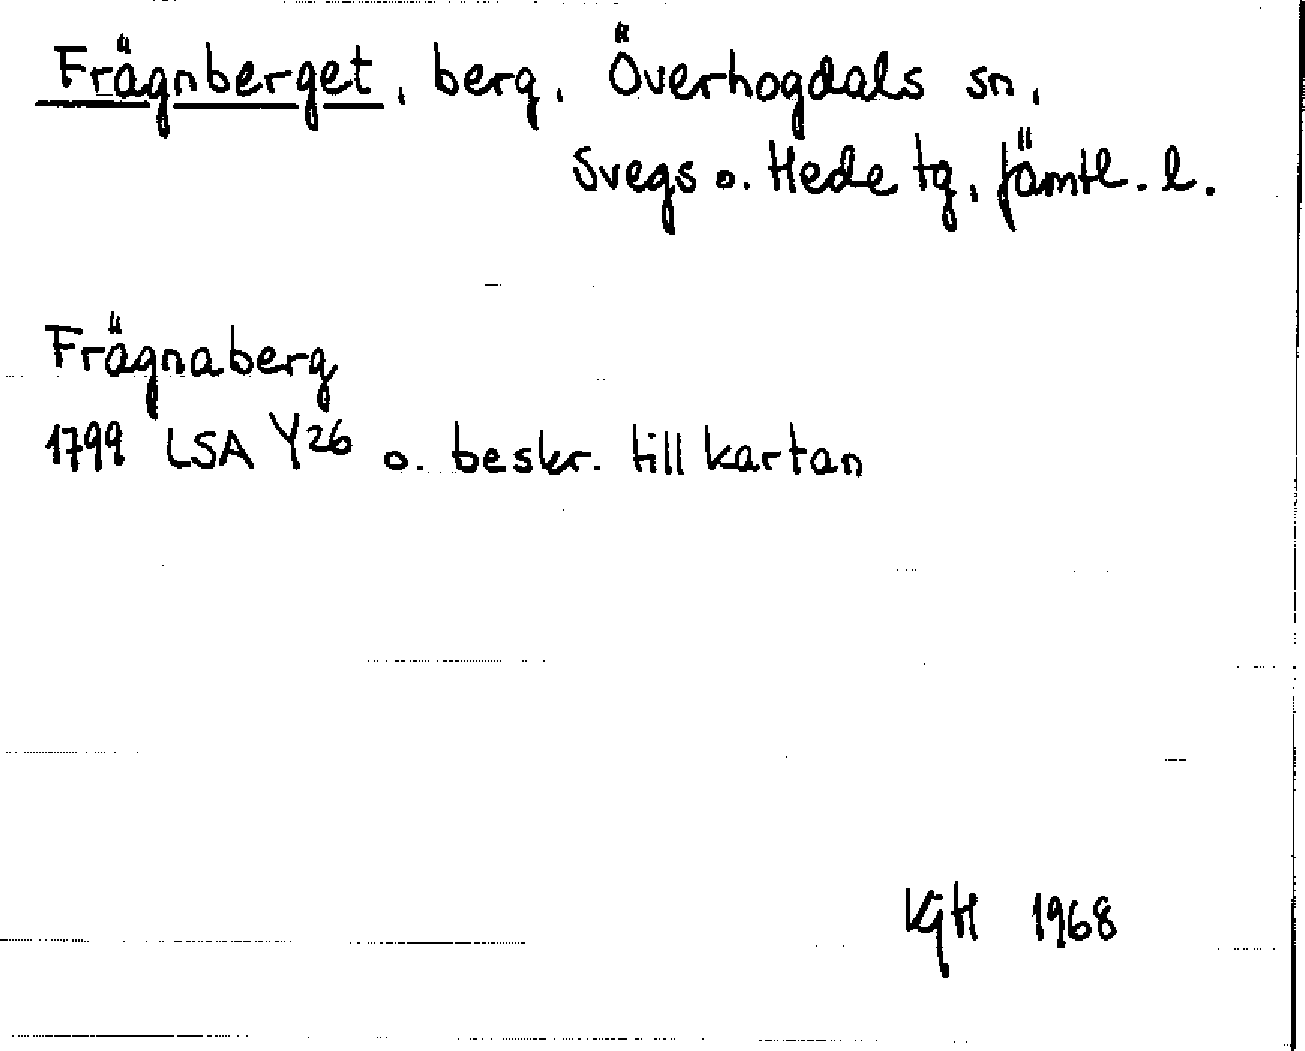 Frägnberget, berg, Överhogdals sn,
Svegs o. Hede tg, Jämtl. l.
Frägnaberg
1799 LSA Y26 o. beskr. till kartan
KjH 1968